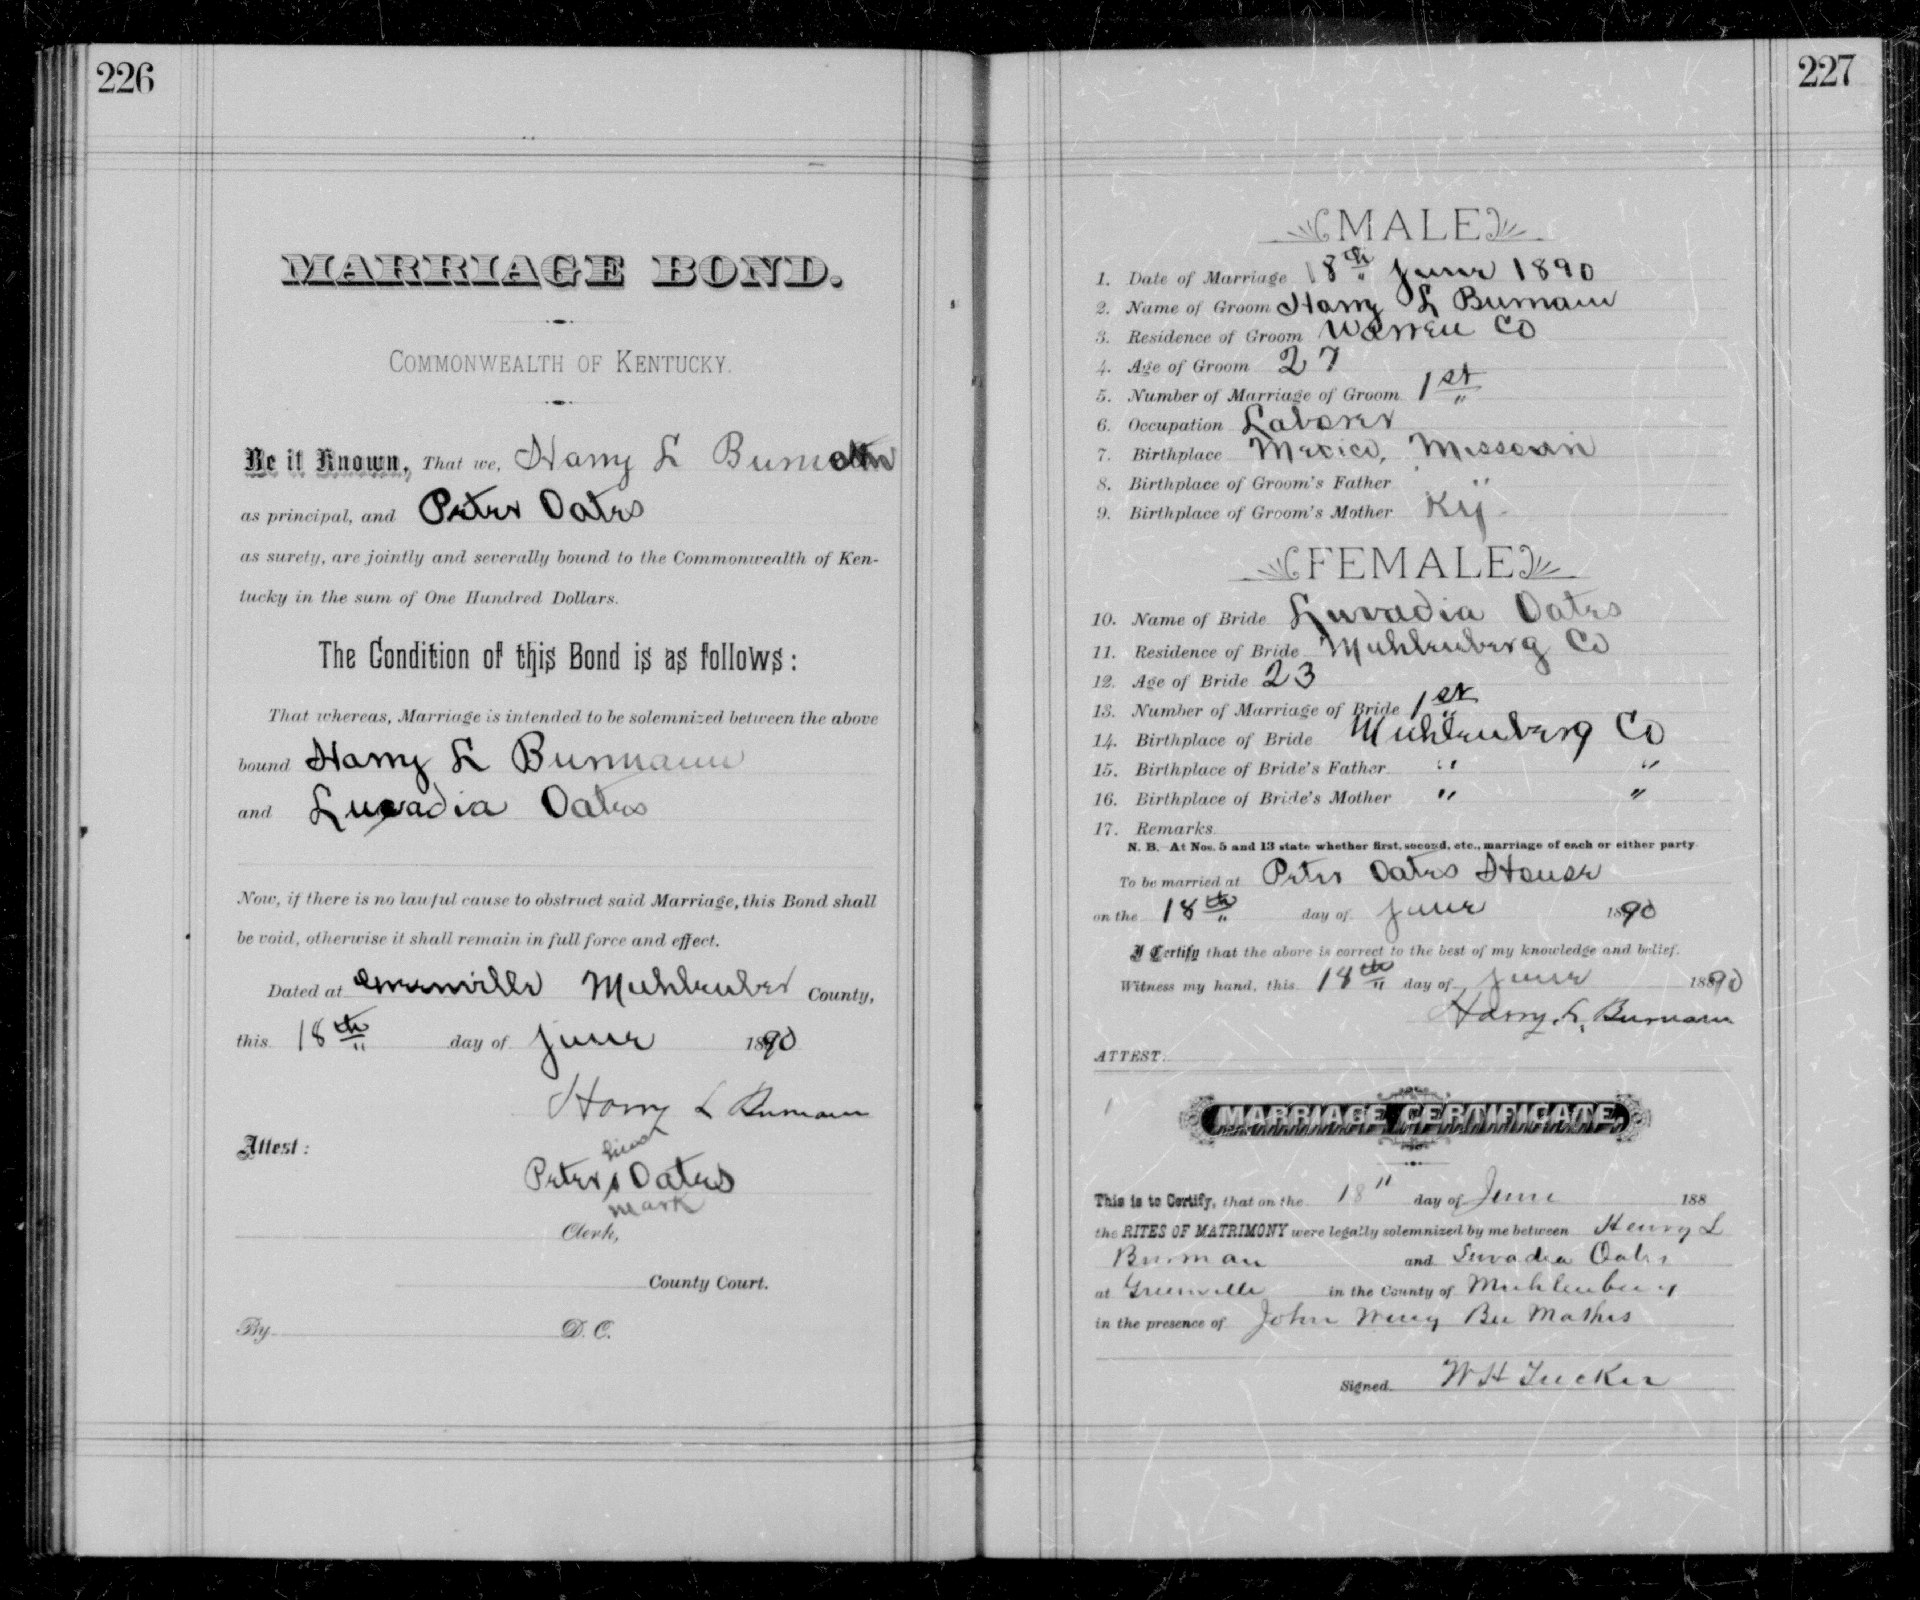 226
MARRIAGE BOND.
COMMONWEALTH OF KENTUCKY.
Be it Known, That we, Harry L Burnam
as principal, and Peter Oates
as surety, are jointly and severally bound to the Commonwealth of Ken-
tucky in the sum of One Hundred Dollars.
The Condition of this Bond is as follows:
That whereas, Marriage is intended to be solemnized between the above
bound Harry L Burnam
and Luvadia Oates
Now, if there is no lawful cause to obstruct said Marriage, this Bond shall
be void, otherwise it shall remain in full force and effect.
Dated at Greenville Muhlenber County,
this 18th day of June 1890
Harry L Burnam
Attest:
his
Peter x Oates
mark
Clerk,
County Court.
By D. C.
227
MALE
1. Date of Marriage 18th June 1890
2. Name of Groom Harry L Burnam
3. Residence of Groom Warren Co
4. Age of Groom 27
5. Number of Marriage of Groom 1st
6. Occupation Laborer
7. Birthplace Mexico, Missouri
8. Birthplace of Groom's Father "
9. Birthplace of Groom's Mother Ky
FEMALE
10. Name of Bride Luvadia Oates
11. Residence of Bride Muhlenberg Co
12. Age of Bride 23
13. Number of Marriage of Bride 1st
14. Birthplace of Bride Muhlenberg Co
15. Birthplace of Bride's Father " "
16. Birthplace of Bride's Mother " "
17. Remarks
N. B.—At Nos. 5 and 13 state whether first, second, etc., marriage of each or either party.
To be married at Peter Oates House
on the 18th day of June 1890
I Certify that the above is correct to the best of my knowledge and belief.
Witness my hand, this 18th day of June 1890
Harry. L. Burnam
ATTEST:
MARRIAGE CERTIFICATE.
This is to Certify, that on the 18" day of June 188
the RITES OF MATRIMONY were legally solemnized by me between Henry L
Burman and Luvadia Oates
at Greenville in the County of Muhlenberg
in the presence of John Wing Bee Mathis
Signed. W H Tucker